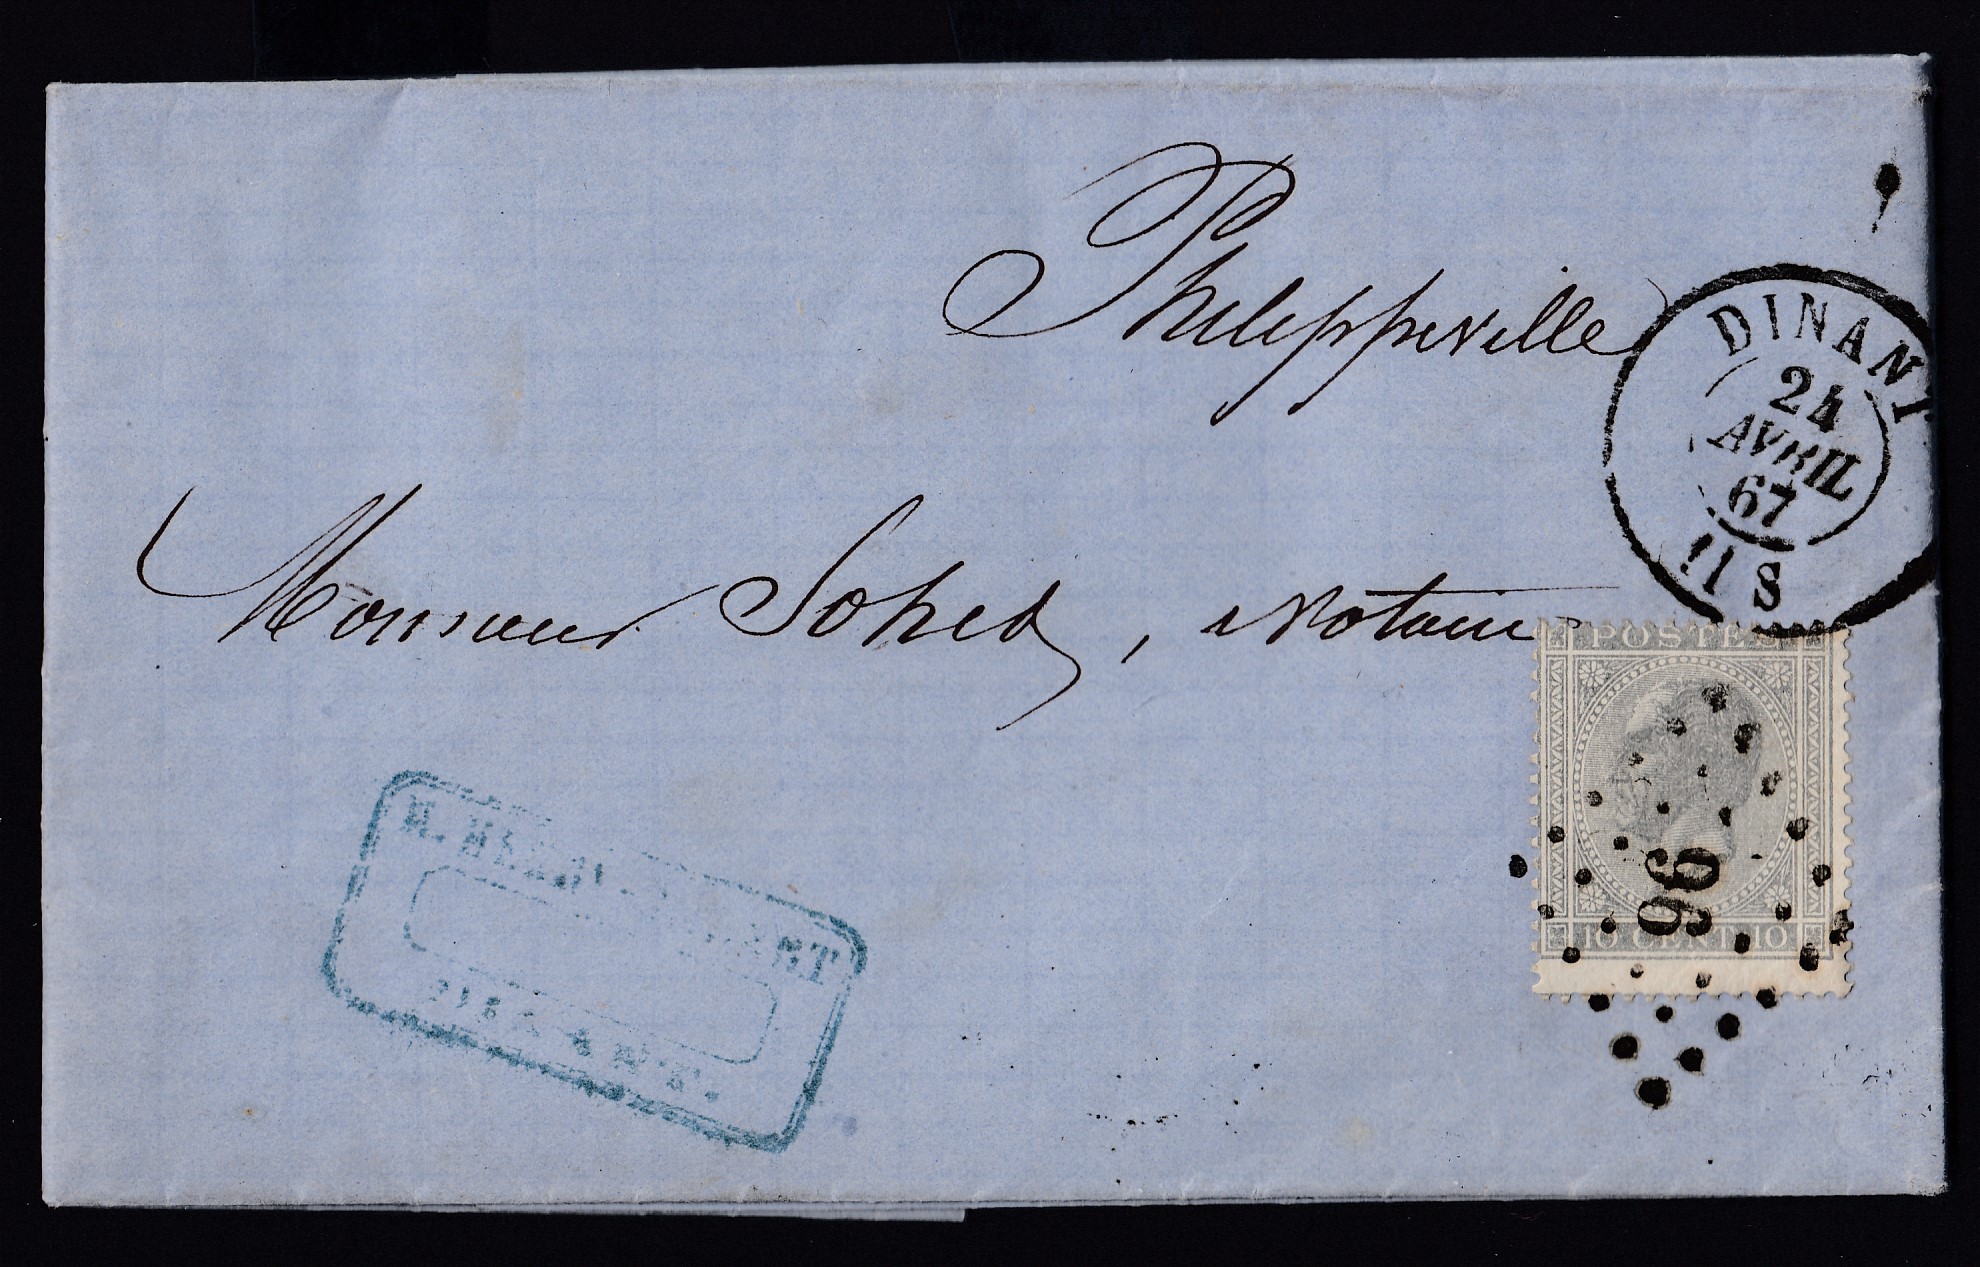 Philippeville
DINANT
24
AVRIL
67
11 S
Monsieur Sohet, Notaire
POSTES
96
10 CENT 10
DINANT.